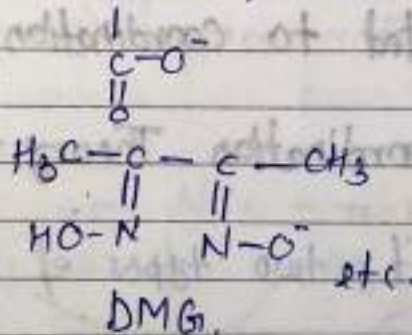 C-O⁻
O
H₃C-C-C-CH₃
HO-N N-O⁻
etc.
DMG.